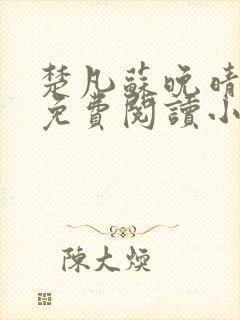 楚凡蘇晚晴
免費閱讀小
陳大煥